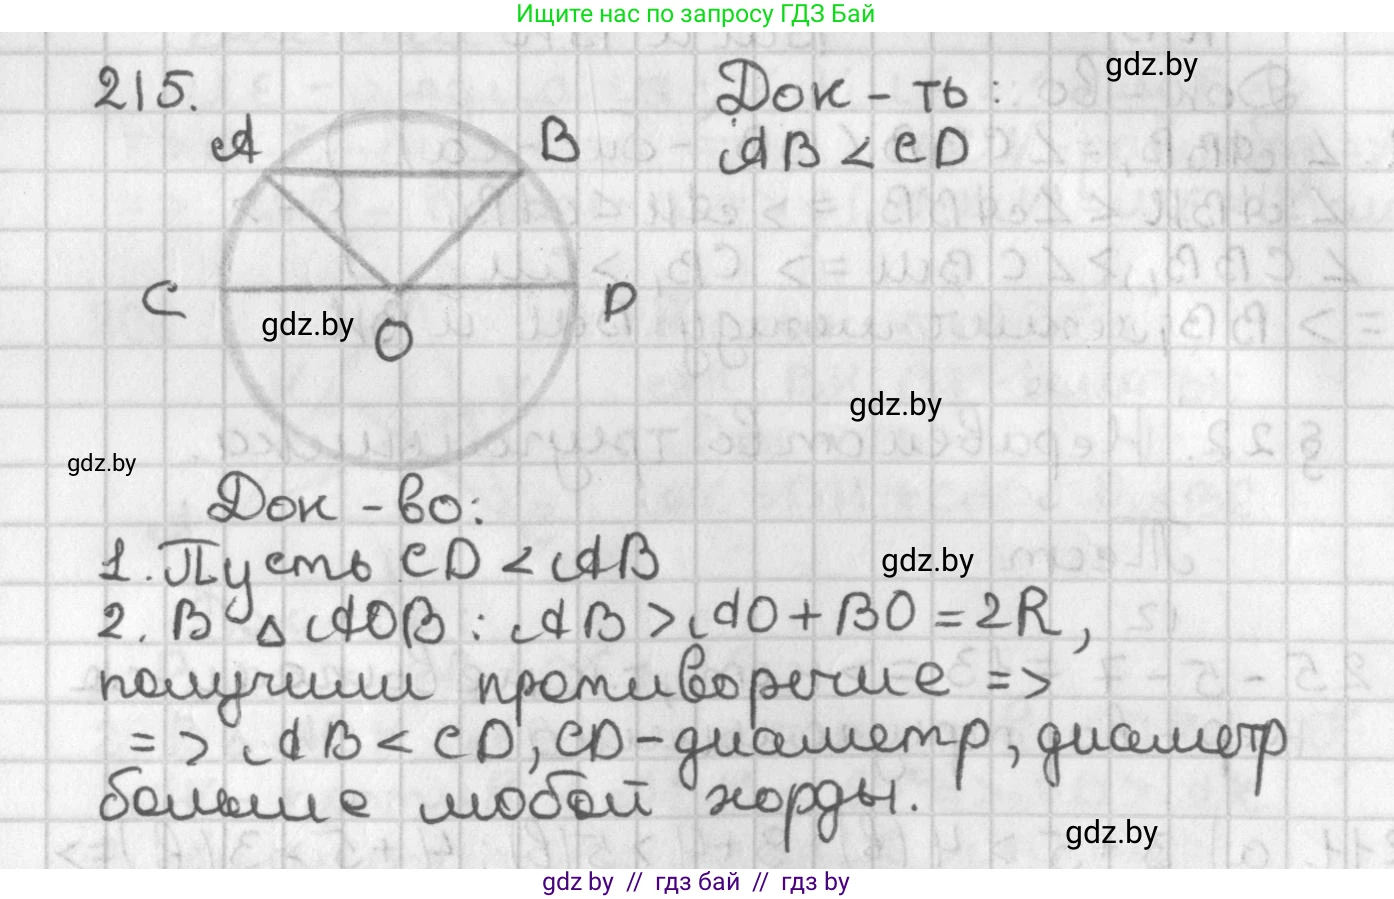 Ищите нас по запросу ГДЗ Бай
gdz.by
215.
Док-ть:
A
B
AB < CD
C
D
gdz.by
O
gdz.by
gdz.by
Док-во:
1. Пусть CD < AB
gdz.by
2. В △ AOB : AB > AO + BO = 2R,
получили противоречие =>
=> AB < CD, CD - диаметр, диаметр
больше любой хорды.
gdz.by
gdz by // гдз бай // гдз by